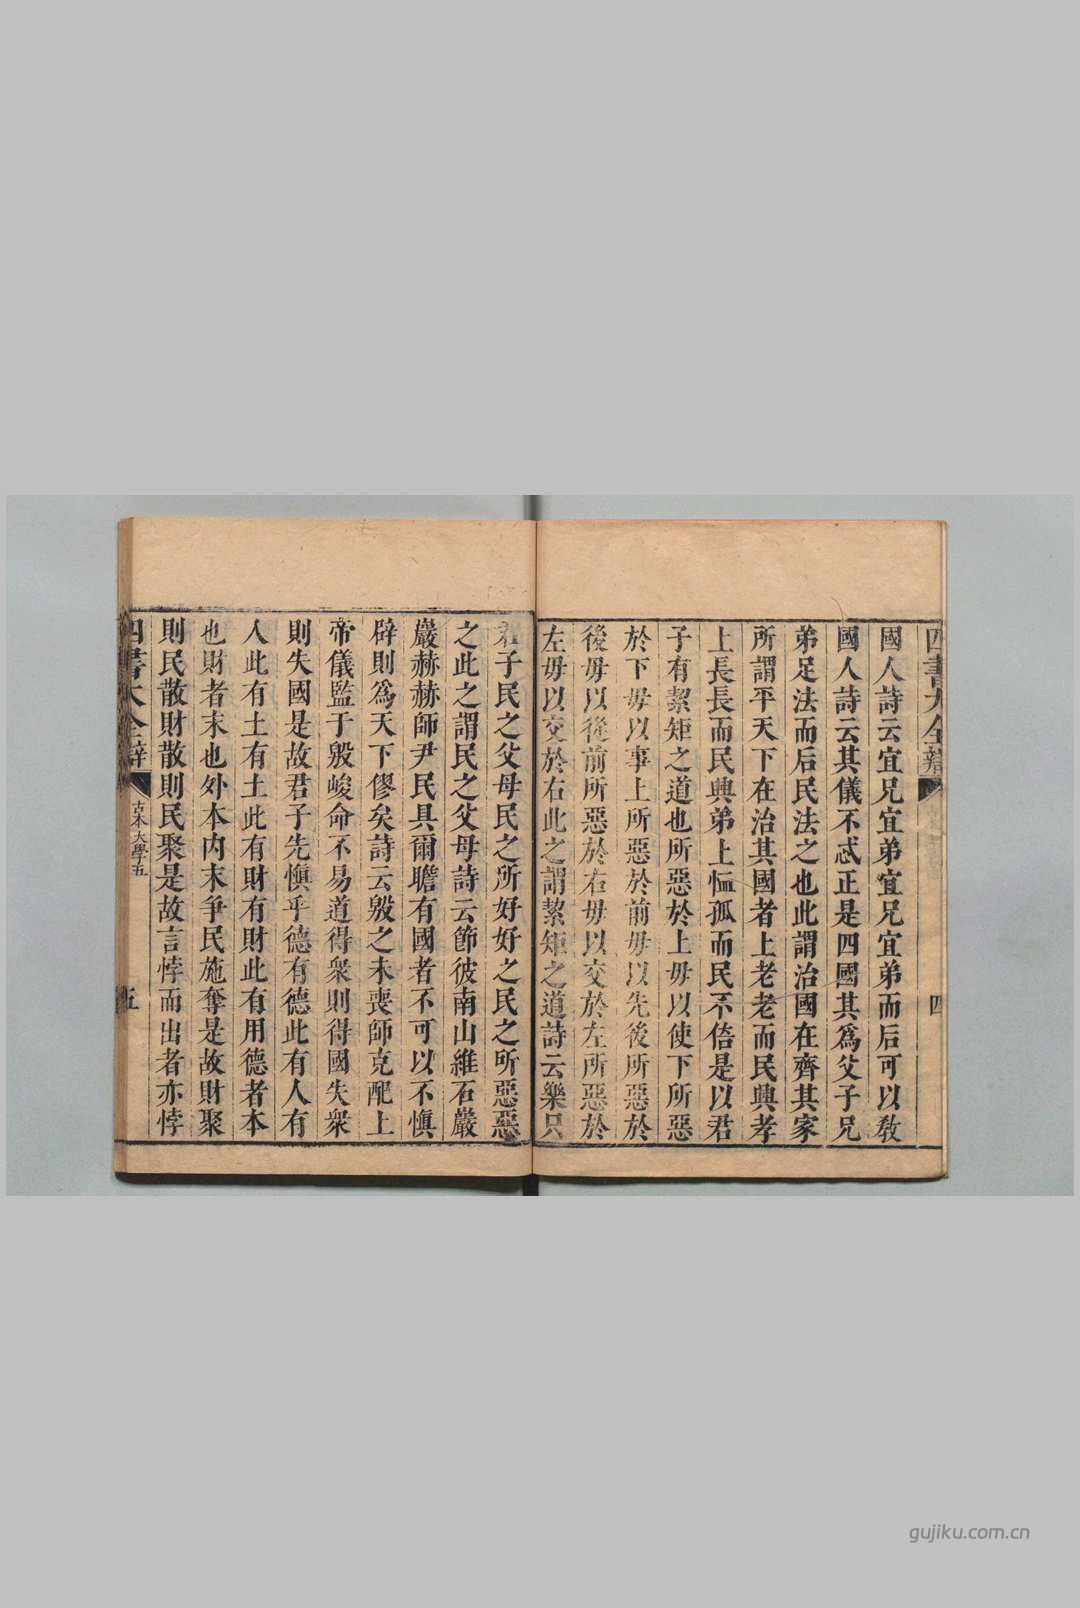 四書大全辯
四
國人詩云宜兄宜弟宜兄宜弟而后可以教
國人詩云其儀不忒正是四國其爲父子兄
弟足法而后民法之也此謂治國在齊其家
所謂平天下在治其國者上老老而民興孝
上長長而民興弟上恤孤而民不倍是以君
子有絜矩之道也所惡於上毋以使下所惡
於下毋以事上所惡於前毋以先後所惡於
後毋以從前所惡於右毋以交於左所惡於
左毋以交於右此之謂絜矩之道詩云樂只
君子民之父母民之所好好之民之所惡惡
之此之謂民之父母詩云節彼南山維石巖
巖赫赫師尹民具爾瞻有國者不可以不慎
辟則爲天下僇矣詩云殷之未喪師克配上
帝儀監于殷峻命不易道得衆則得國失衆
則失國是故君子先慎乎德有德此有人有
人此有土有土此有財有財此有用德者本
也財者末也外本内末爭民施奪是故財聚
則民散財散則民聚是故言悖而出者亦悖
四書大全辯
古本大學五
五
gujiku.com.cn